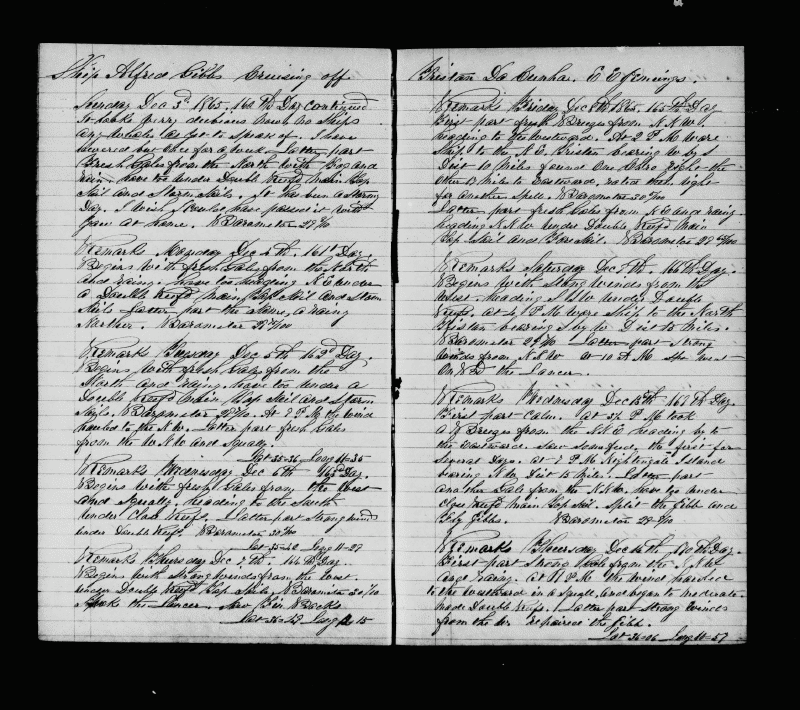 Ship Alfred Gibbs Cruising off
Sunday Dec 3d 1865, 160th Day continued
It looks very dubious about
any Whales as yet to speak of. I have
lowered but once for a week. Latter part
Fresh Gales from the North with Fog and
rain have too under Double Reef'd Main Top
Sail and Storm Sails. It has been a Stormy
Day. I wish I could have passed it with
Jane at home. Barometer
Remarks Monday Dec 4th, 161st Day
Begins with fresh Gales from the North
and raing. have too heading N.E. under
a Double Reef'd main Top Sail and Storm
Sails Latter part the same, a raing
Norther. Barometer
Remarks Tuesday Dec 5th 162d Day.
Begins with fresh Gales from the
North and raing, have too under a
Double Reef'd Main Top Sail and Storm
Sails. Barometer At 8 P M the Wind
hauled to the N.W. Latter part fresh Gales
from the W.N.W. and Squally.
Lat 35-36 Long 11-35
Remarks Wednesday Dec 6th 163d Day.
Begins with fresh Gales from the West
and Squally, heading to the South
under Close Reefs. Latter part Strong winds
under Double Reefs. Barometer
Long 11-27
Remarks Thursday Dec 7th. 164th Day.
Begins with strong winds from the West.
under Double Reef'd Top Sails Barometer
Spoke the Lancer. Saw Fin Backs
Long 15
Tristan Da Cunha. E E Jennings.
Remarks Friday Dec 8th 1865, 165th Day
First part fresh Breezes from N.N.W.
heading to the Westward. At 2 P M Wore
Ship to the N.E. Tristan bearing W by S
Dist 10 Miles found One
other 15 Miles to Eastward,
for another Spell. Barometer
Latter part fresh Gales from N.E. and raing.
heading N.N.W. under Double Reef'd Main
Top Sail and Fore Sail. Barometer
Remarks Saturday Dec 9th, 166th Day.
Begins with Strong Winds from the
West. heading under Double
Reefs. at 4 P M Wore Ship to the North
Tristan bearing S by W Dist 10 Miles.
Barometer Latter part strong
winds from N.N.W. at 10 A M
the Lancer.
Remarks Wednesday Dec 13th, Day
First part Calm. at P M took
a Breeze from the N.N.E. heading by to
the Eastward. Saw some feed, the first for
several Days. at P M Nightingale Island
bearing N.W. Dist 15 Miles. Latter part
another Gale from the N.N.W. have too under
Close Reef'd Main Top Sail. Split the Gibb and
Fly Gibbs. Barometer
Remarks Thursday Dec 14th, Day.
First part Strong Gales from the N.W.
and raing. at 11 P M the wind hauled
to the Westward in a Squall, and began to moderate
made Double Reefs. Latter part Strong Winds
from the repaired the Gibb.
Lat 36-06 Long 11-57